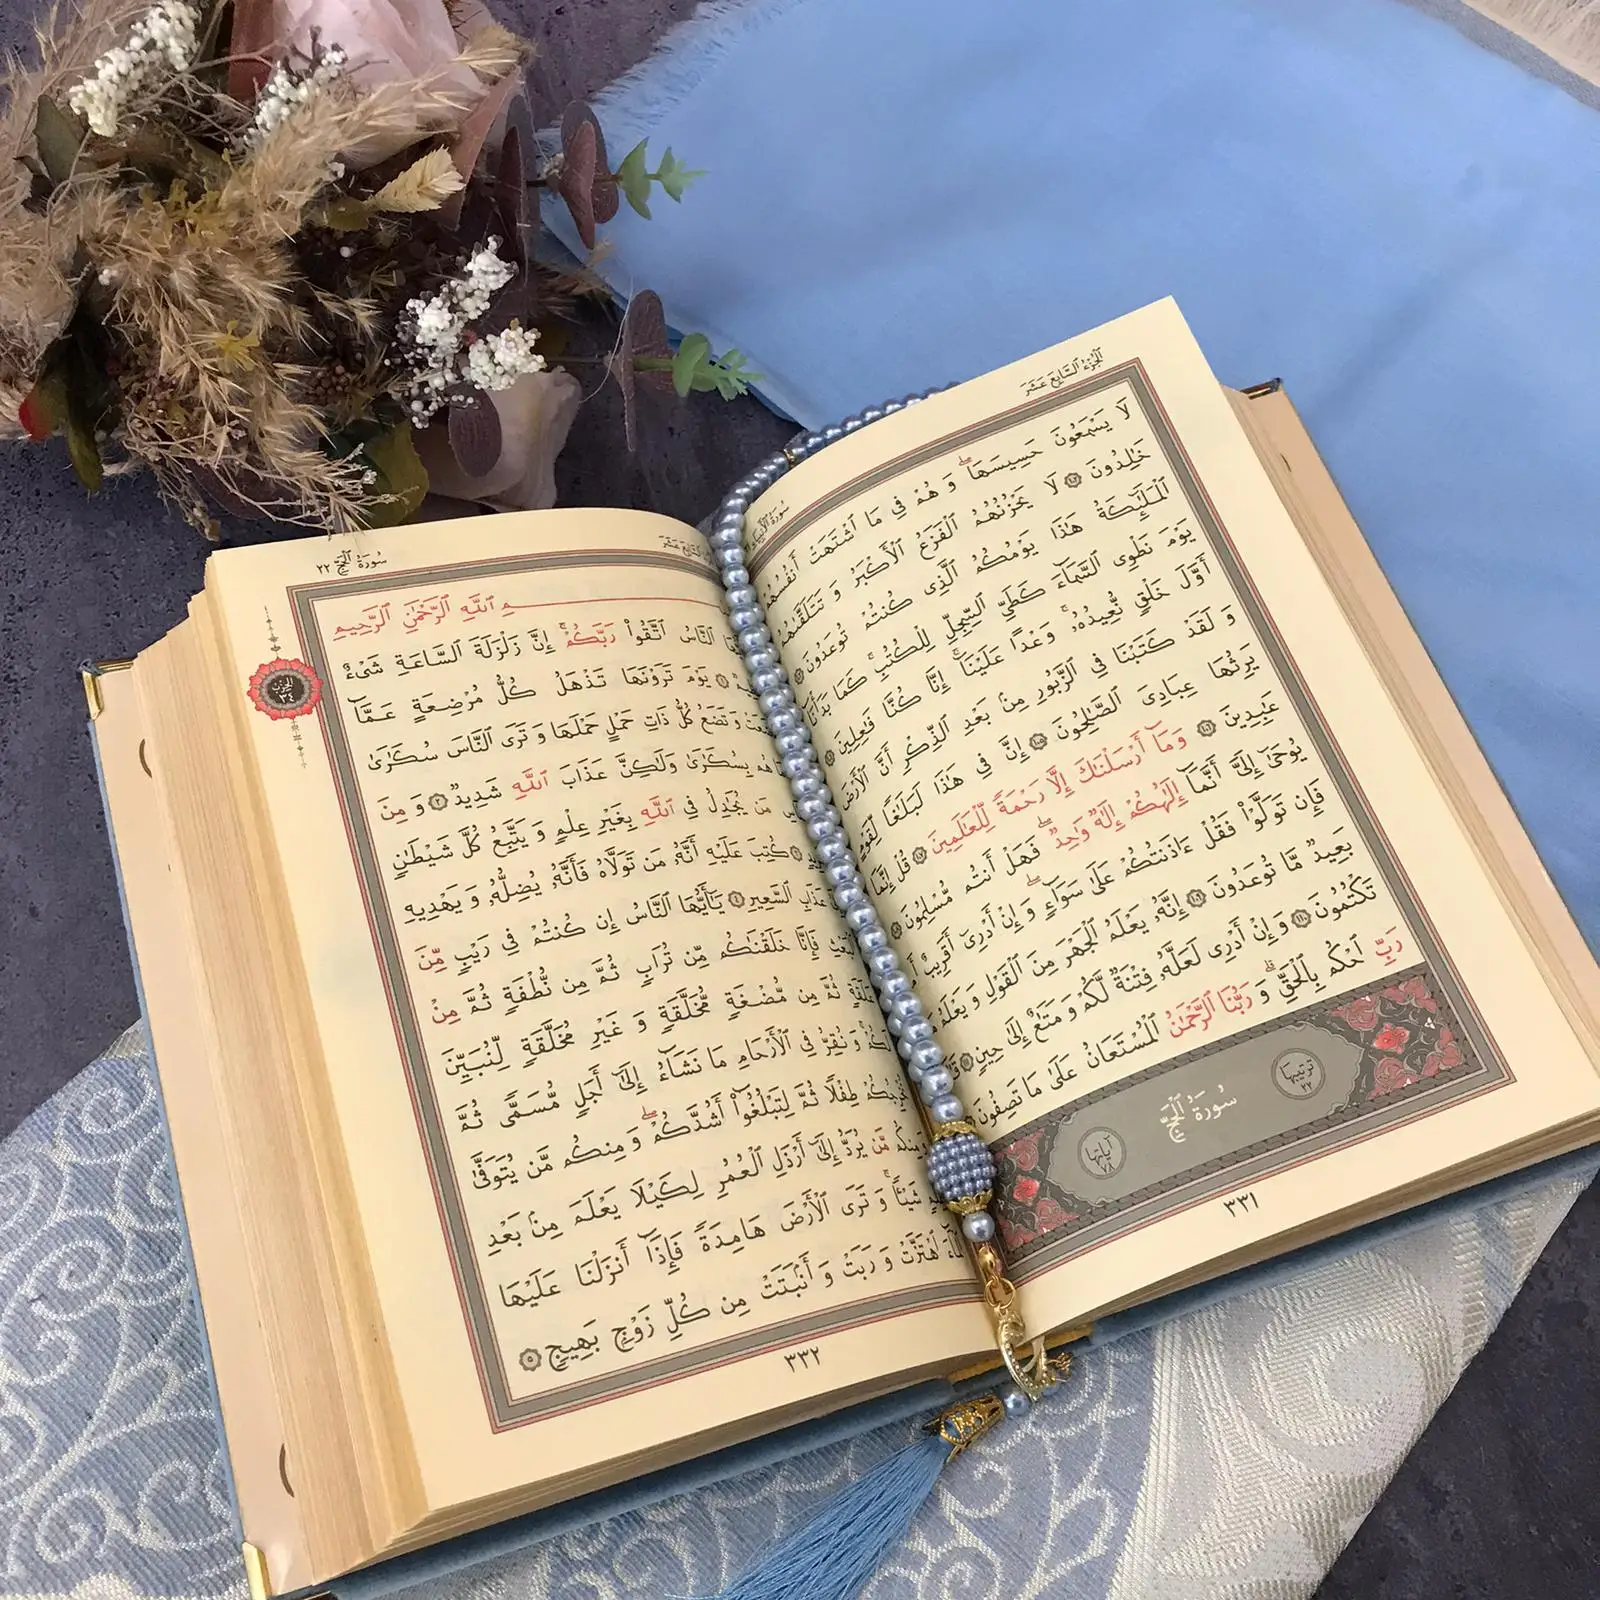 اَلْجُزْءُ السَّابِعَ عَشَرَ
سُورَةُ الْأَنْبِيَاءِ
لَا يَسْمَعُونَ حَسِيسَهَا ۖ وَ هُمْ فِي مَا اشْتَهَتْ أَنفُسُهُمْ
خَٰلِدُونَ ١٠٢ لَا يَحْزُنُهُمُ الْفَزَعُ الْأَكْبَرُ وَ تَتَلَقَّىٰهُمُ
الْمَلَٰٓئِكَةُ هَٰذَا يَوْمُكُمُ الَّذِي كُنتُمْ تُوعَدُونَ ١٠٣
يَوْمَ نَطْوِي السَّمَآءَ كَطَيِّ السِّجِلِّ لِلْكُتُبِ ۚ كَمَا بَدَأْنَآ
أَوَّلَ خَلْقٍ نُّعِيدُهُۥ ۚ وَعْدًا عَلَيْنَآ ۚ إِنَّا كُنَّا فَٰعِلِينَ ١٠٤
وَ لَقَدْ كَتَبْنَا فِي الزَّبُورِ مِنۢ بَعْدِ الذِّكْرِ أَنَّ الْأَرْضَ
يَرِثُهَا عِبَادِيَ الصَّٰلِحُونَ ١٠٥ إِنَّ فِي هَٰذَا لَبَلَٰغًا لِّقَوْمٍ
عَٰبِدِينَ ١٠٦ وَمَآ أَرْسَلْنَٰكَ إِلَّا رَحْمَةً لِّلْعَٰلَمِينَ ١٠٧ قُلْ إِنَّمَا
يُوحَىٰٓ إِلَيَّ أَنَّمَآ إِلَٰهُكُمْ إِلَٰهٌ وَٰحِدٌ ۖ فَهَلْ أَنتُم مُّسْلِمُونَ ١٠٨
فَإِن تَوَلَّوْا فَقُلْ ءَاذَنتُكُمْ عَلَىٰ سَوَآءٍ ۖ وَ إِنْ أَدْرِيٓ أَقَرِيبٌ أَم
بَعِيدٌ مَّا تُوعَدُونَ ١٠٩ إِنَّهُۥ يَعْلَمُ الْجَهْرَ مِنَ الْقَوْلِ وَ يَعْلَمُ مَا
تَكْتُمُونَ ١١٠ وَ إِنْ أَدْرِي لَعَلَّهُۥ فِتْنَةٌ لَّكُمْ وَ مَتَٰعٌ إِلَىٰ حِينٍ ١١١ قَٰلَ
رَبِّ احْكُم بِالْحَقِّ ۗ وَ رَبُّنَا الرَّحْمَٰنُ الْمُسْتَعَانُ عَلَىٰ مَا تَصِفُونَ
ترتيبها ٢٢
سُورَةُ الْحَجِّ
آياتها ٧٨
٣٣١
السَّابِعَ عَشَرَ
سُورَةُ الْحَجِّ ٢٢
الحزب
٣٤
مِ اللَّهِ الرَّحْمَٰنِ الرَّحِيمِ
النَّاسُ اتَّقُوا رَبَّكُمْ ۚ إِنَّ زَلْزَلَةَ السَّاعَةِ شَيْءٌ
يَوْمَ تَرَوْنَهَا تَذْهَلُ كُلُّ مُرْضِعَةٍ عَمَّآ
وَ تَضَعُ كُلُّ ذَاتِ حَمْلٍ حَمْلَهَا وَ تَرَى النَّاسَ سُكَٰرَىٰ
هُم بِسُكَٰرَىٰ وَلَٰكِنَّ عَذَابَ اللَّهِ شَدِيدٌ ٢ وَ مِنَ
مَن يُجَٰدِلُ فِي اللَّهِ بِغَيْرِ عِلْمٍ وَ يَتَّبِعُ كُلَّ شَيْطَٰنٍ
كُتِبَ عَلَيْهِ أَنَّهُۥ مَن تَوَلَّاهُ فَأَنَّهُۥ يُضِلُّهُۥ وَ يَهْدِيهِ
عَذَابِ السَّعِيرِ ٤ يَٰٓأَيُّهَا النَّاسُ إِن كُنتُمْ فِي رَيْبٍ مِّنَ
الْبَعْثِ فَإِنَّا خَلَقْنَٰكُم مِّن تُرَابٍ ثُمَّ مِن نُّطْفَةٍ ثُمَّ مِنْ
عَلَقَةٍ ثُمَّ مِن مُّضْغَةٍ مُّخَلَّقَةٍ وَ غَيْرِ مُخَلَّقَةٍ لِّنُبَيِّنَ
لَكُمْ ۚ وَ نُقِرُّ فِي الْأَرْحَامِ مَا نَشَآءُ إِلَىٰٓ أَجَلٍ مُّسَمًّى ثُمَّ
نُخْرِجُكُمْ طِفْلًا ثُمَّ لِتَبْلُغُوٓا أَشُدَّكُمْ ۖ وَ مِنكُم مَّن يُتَوَفَّىٰ
وَ مِنكُم مَّن يُرَدُّ إِلَىٰٓ أَرْذَلِ الْعُمُرِ لِكَيْلَا يَعْلَمَ مِنۢ بَعْدِ
شَيْـًٔا ۚ وَ تَرَى الْأَرْضَ هَامِدَةً فَإِذَآ أَنزَلْنَا عَلَيْهَا
اهْتَزَّتْ وَ رَبَتْ وَ أَنۢبَتَتْ مِن كُلِّ زَوْجٍ بَهِيجٍ ٥
٣٣٢